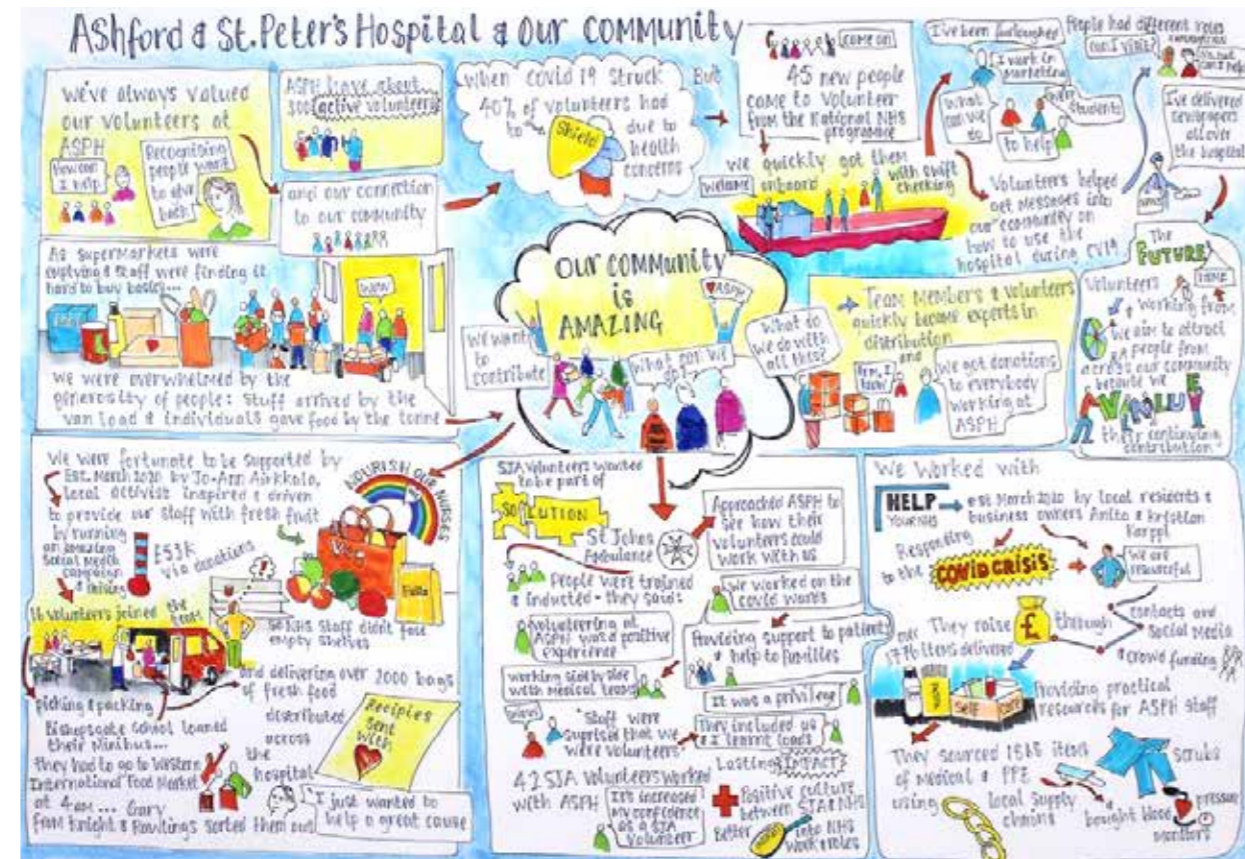 Ashford & St. Peter's Hospital & Our Community
We've always valued
our volunteers at
ASPH
How can
I help
Recognising
people want
to give
back
ASPH have about
active volunteers
and our connection
to our community
When covid 19 struck
40% of volunteers had
to
Shield
due to
health
concerns
But
come on
45 new people
came to volunteer
from the National NHS
programme
we quickly got them
onboard
with swift
checking
Welcome
I've been furloughed
I work in
Marketing
What
can we
do
students
to help
People had different roles
can I visit?
I've delivered
newspapers
all over
the hospital
Volunteers helped
get messages into
our community on
how to use the
hospital during CV19
As supermarkets were
emptying & staff were finding it
hard to buy basics...
WOW
we were overwhelmed by the
generosity of people: Stuff arrived by the
van load & individuals gave food by the tonne
Our community
is
AMAZING
ASPH
We want
to
contribute
What can we
do?
What do
we do with
all this?
Team Members & volunteers
quickly became experts in
distribution
and
We got donations
to everybody
working at
ASPH
The
FUTURE!
Volunteers
working from
HOME
we aim to attract
people from
across our community
because we
VALUE
their continuing
contribution
We were fortunate to be supported by
NOURISH OUR NURSES
Est. March 2020 by Jo-Ann
local activist inspired & driven
to provide our staff with fresh fruit
by running
an amazing
Social Media
campaign
& raising
£53K
via donations
16 volunteers joined the
team
So NHS staff didn't face
empty shelves
picking & packing
and delivering over 2000 bags
of fresh food
distributed
across
the
hospital
Recipies
sent
with
Bishopsgate School loaned
their Minibus...
they had to go to Western
International Food Market
at 4am... Gary
from Knight & Rawlings sorted them out
"I just wanted to
help a great cause
SJA Volunteers wanted
to be part of
SOLUTION
St Johns
Ambulance
Approached ASPH to
see how their
volunteers could
work with us
People were trained
& inducted - they said:
We worked on the
covid wards
Volunteering at
ASPH was a positive
experience
Providing support to patients
& help to families
working side by side
with Medical teams
It was a privilege
"Staff were
suprised that we
were volunteers
They included us
& I learnt loads
Lasting IMPACT!
42 SJA volunteers worked
with ASPH
It's increased
my confidence
as a SJA
Volunteer
Positive culture
between SJA & NHS
Better
into NHS
work & roles
We worked with
HELP
YOUR NHS
est March 2020 by local residents &
business owners Anita & Kristian
Responding
to the
COVID CRISIS
We are
resourceful
They raise
£
through
contacts and
Social Media
& crowd funding
items delivered
self care
Providing practical
resources for ASPH staff
They sourced 1565 items
of medical & PPE
using
local supply
chains
scrubs
bought blood
pressure
monitors